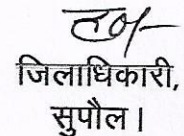 ह०/-
जिलाधिकारी,
सुपौल।